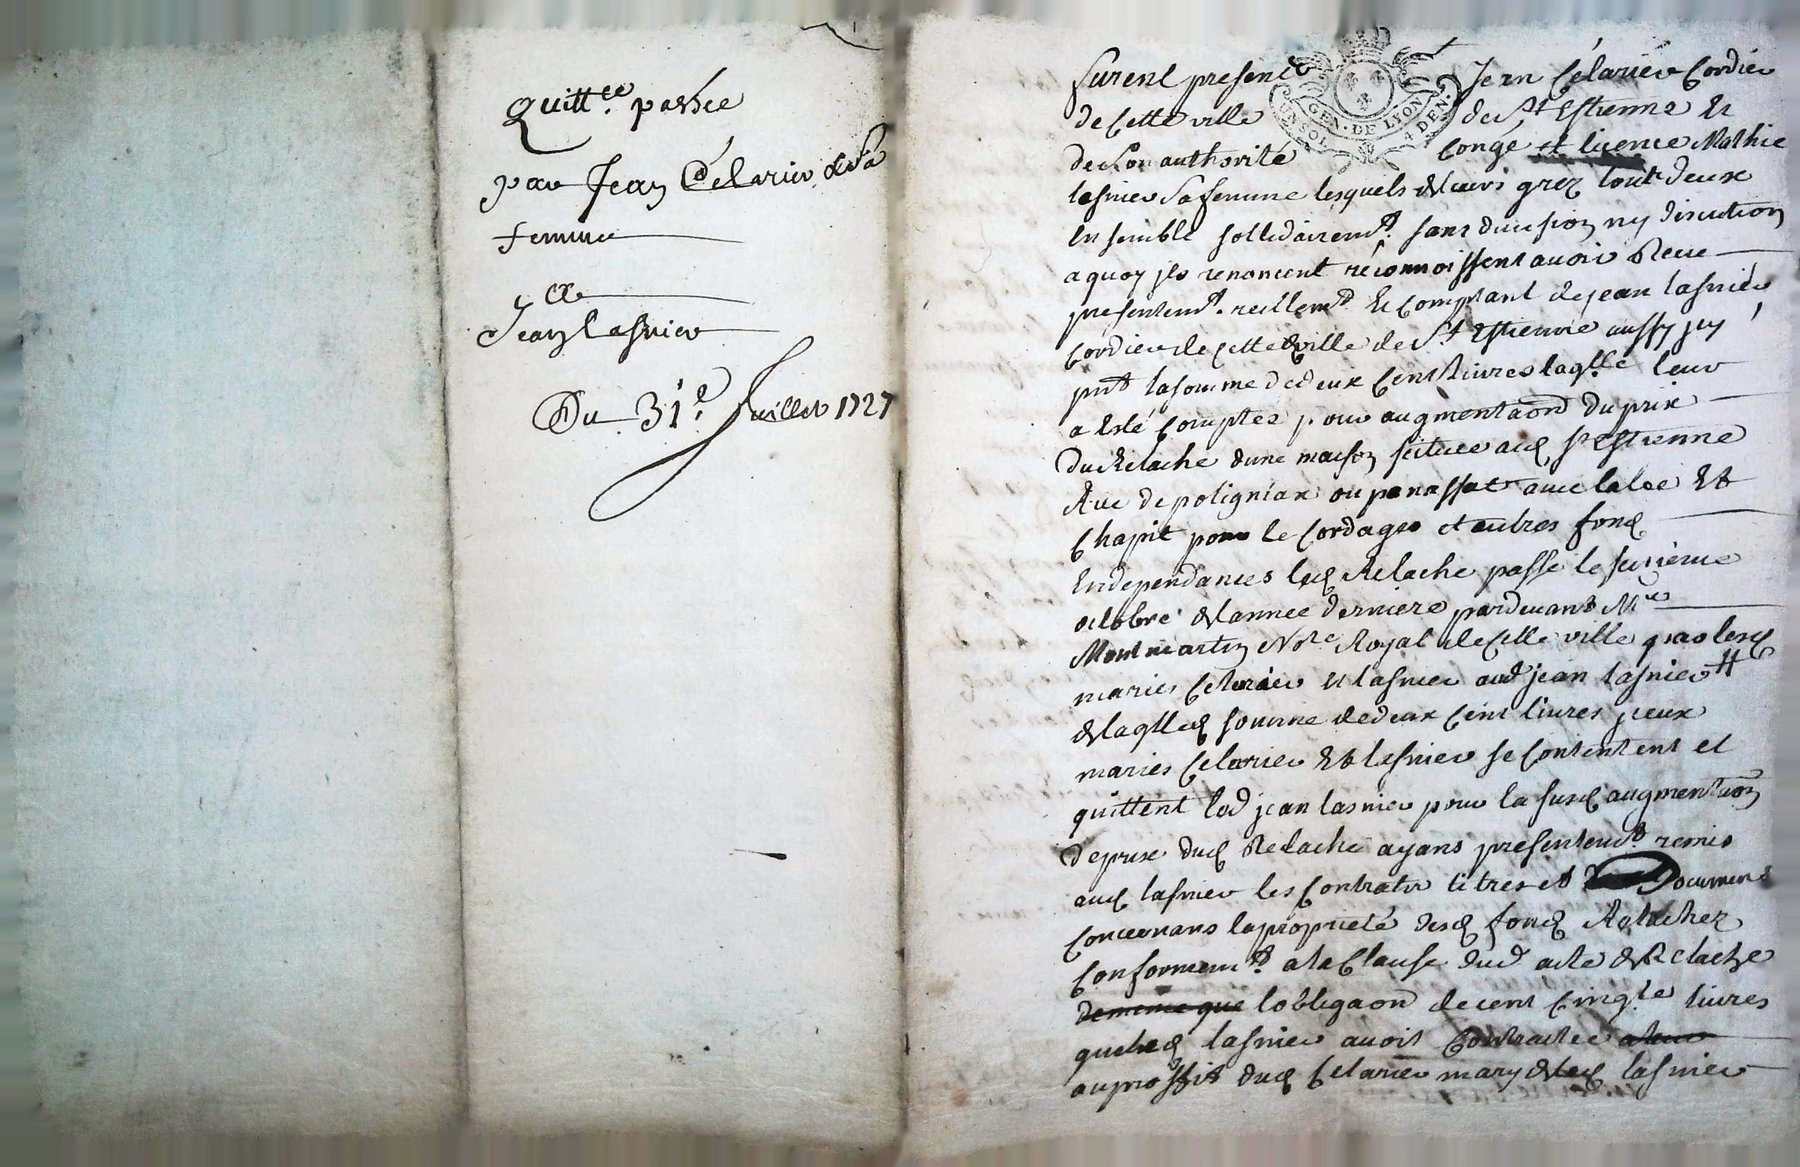 Quitt.ce passée
par Jean Célarier & sa
femme
a
Jean Lasnier
Du 31.e Juillet 1727
GEN. DE LYON
4 DEN.
furent presents Jean Célarier Cordier
de cette ville de St Estienne et
de son authorité congé et licence Mathie
lasnier sa femme lesquels de leurs grez tout deux
ensemble sollidairemt. sans division ny discution
a quoy ils renoncent réconnoissent avoir Receu
presentemt. reellemt et comptant de jean lasnier
cordier de cette ville de St Estienne aussy icy
pnt la somme de deux cent livres laqlle leur
a esté comptée pour augmentaon du prix
du Relache dune maison scituée aud St Estienne
Rue de polignian ou panassat avec lalée et
chapit pour le cordages et autres fond
endependances led Relache passé le
octobre de lannee derniere pardevant Me
Montmartin No.re Royal de cette ville par lesd
maries Celarier et lasnier aud jean lasnier
de laqlled somme de deux cent livres yceux
maries Celarier et lasnier se contentent et
quittent led jean lasnier pour la susd augmentaon
de prix dud Relache ayans presentemt remis
aud lasnier les contrats titres et Document
concernans la proprieté desd fond Relachez
conformemt. a la clause dud acte de Relache
de meme que lobligaon de cent cinq.te livres
que led lasnier avoit contractée
au proffit dud Celarier mary de lad lasnier